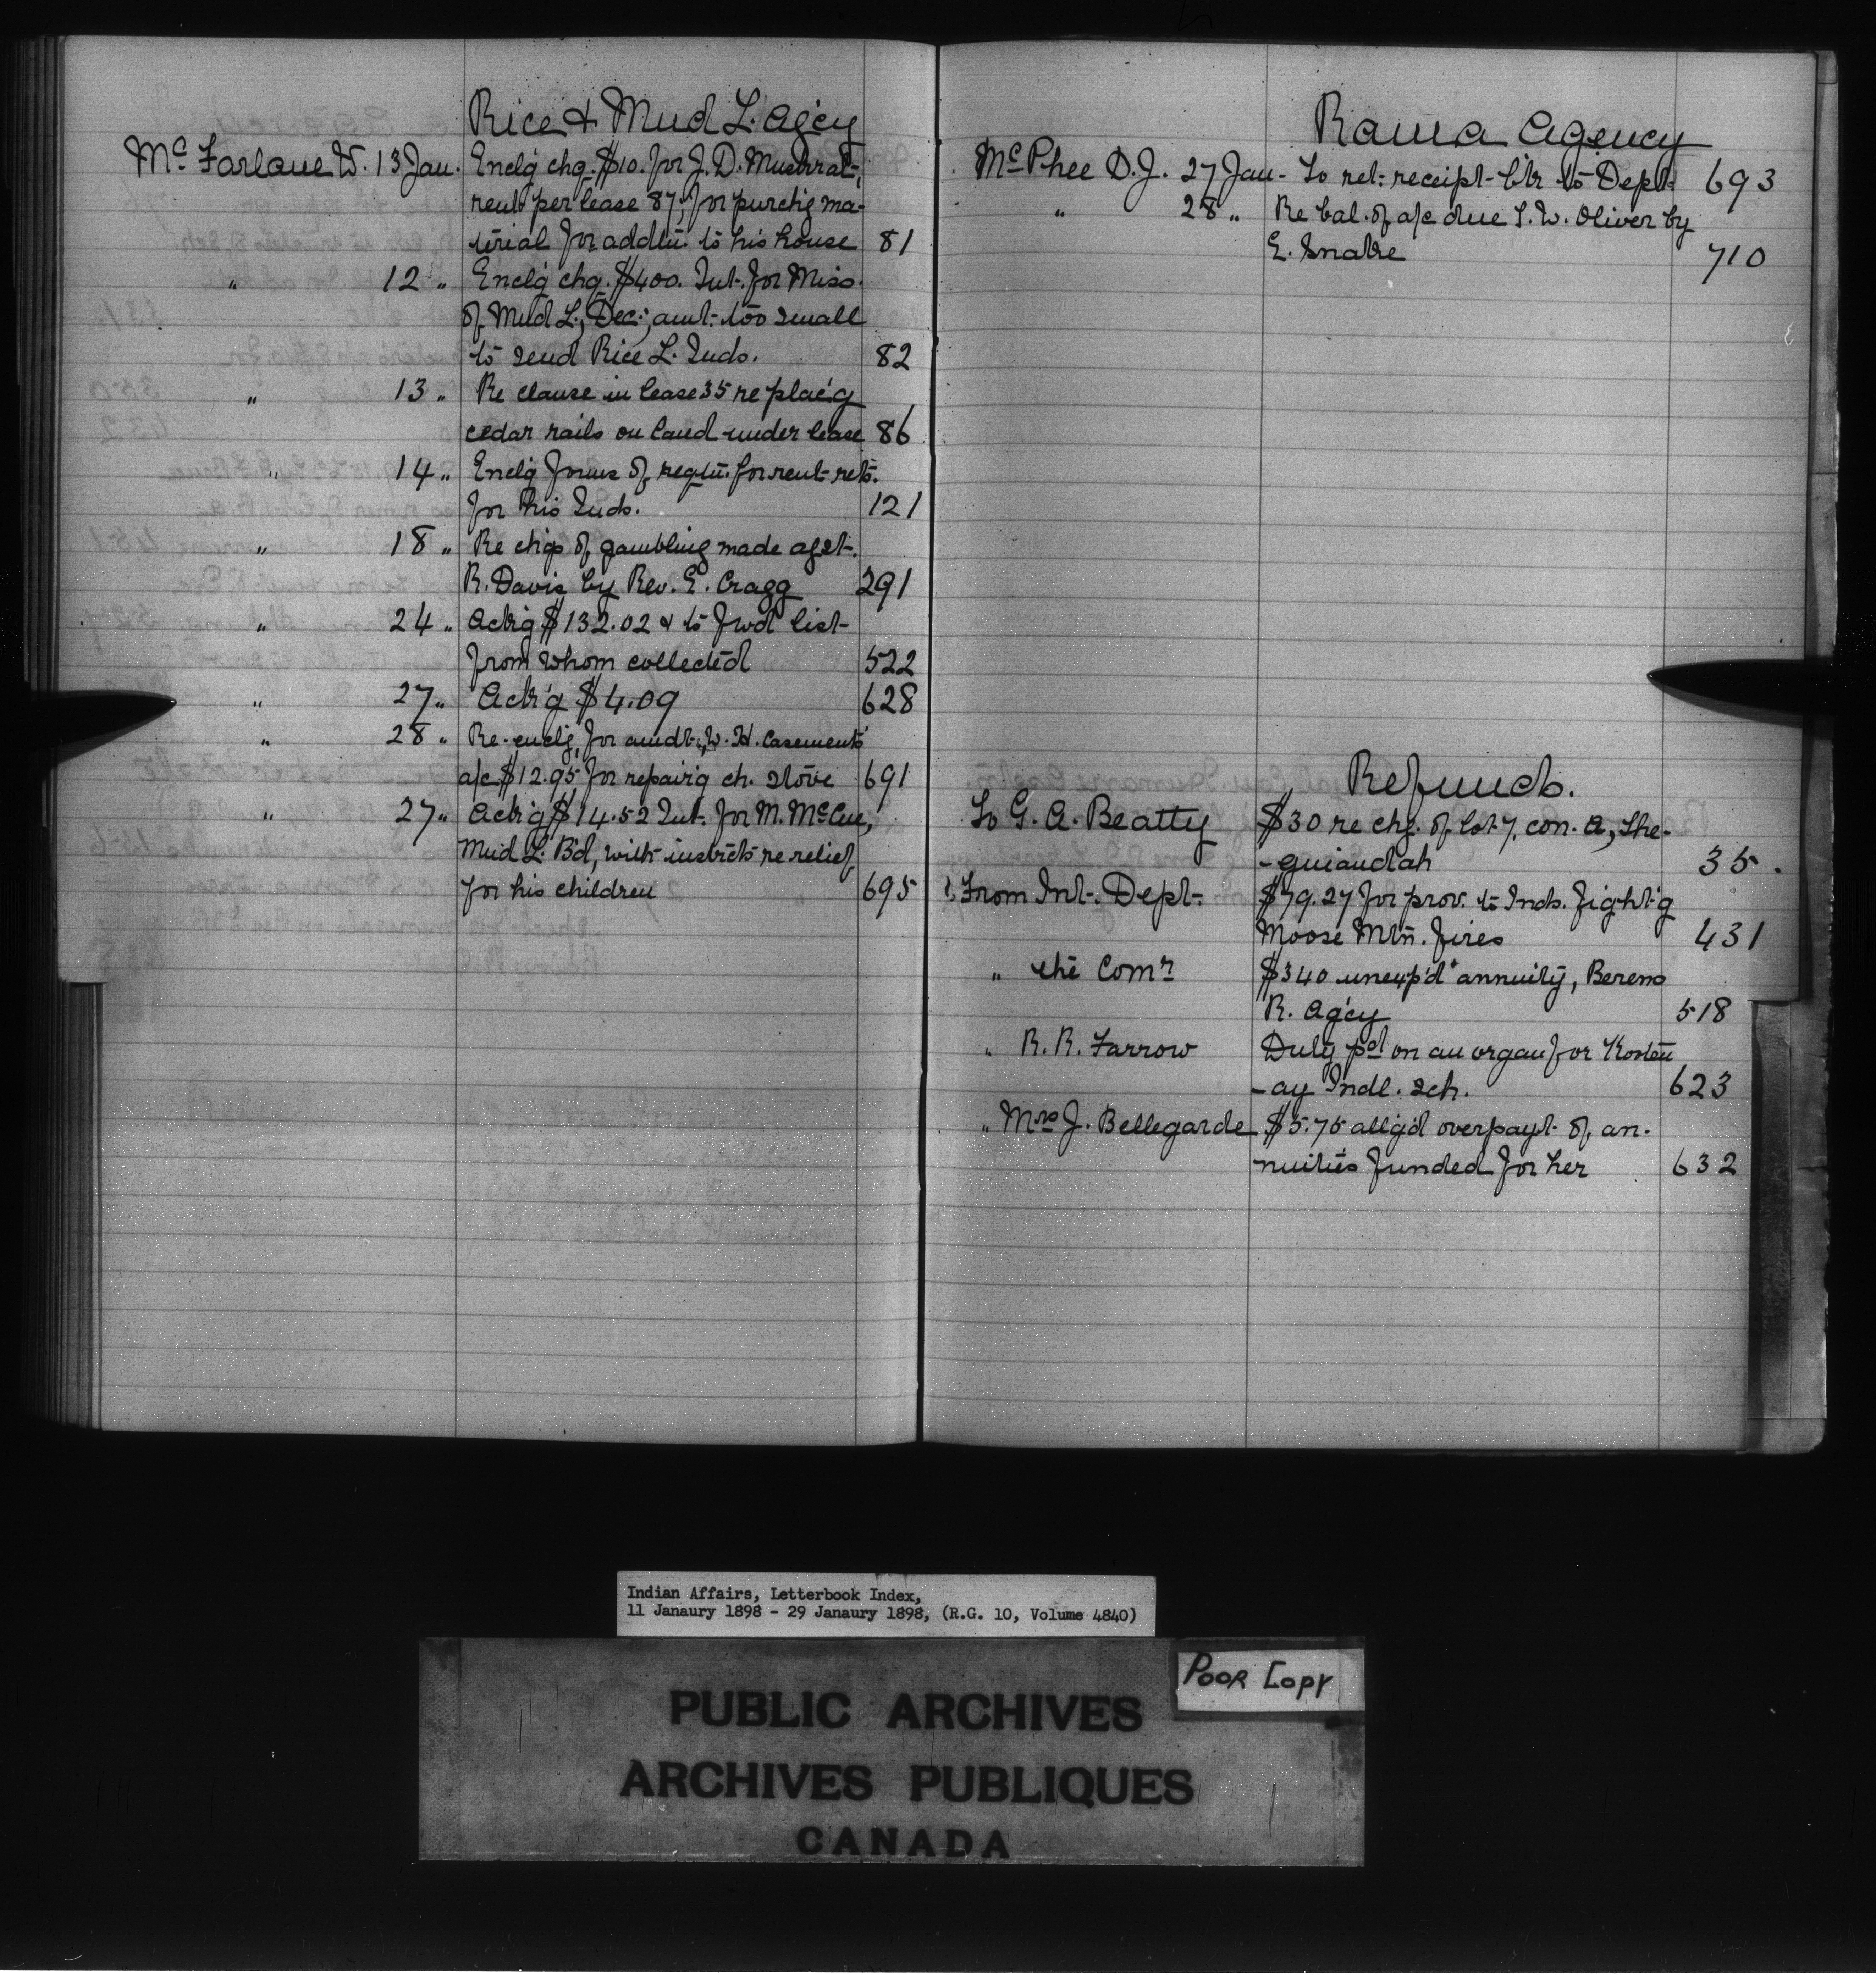 Rice & Mud L. Agcy
McFarlane W. 13 Jan. Enclg chq. $10. for J. D. Muskrat,
rent per lease 87, for purchg ma-
terial for addtn. to his house 81
" 12 " Enclg chq. $400. Int. for Miss.
of Mud L., Dec.; amt. too small
to send Rice L. Inds. 82
" 13 " Re clause in lease 35 re plac'g
cedar rails on land under lease 86
" 14 " Enclg forms of reqtn. for rent rets.
for his Inds. 121
" 18 " Re chgs of gambling made agst.
R. Davis by Rev. E. Cragg 291
" 24 " Ackg $132.02 & to fwd list
from whom collected 522
" 27 " Ack'g $4.09 628
" 28 " Re-enclg, for amdt., W. H. Casements'
a/c $12.95 for repair'g ch. stove 691
" 27 " Ack'g $14.52 Int. for M. McCue,
Mud L. B'd, with instrcts re relief
for his children 695
Rama Agency
McPhee D. J. 27 Jan - To ret. receipt b'k to Dept. 693
" 28 " Re bal. of a/c due S. W. Oliver by
E. Snake 710
Refunds.
To G. A. Beatty $30 re chg. of lot 7, con. A, She-
-guiandah 35.
From Int. Dept. $79.27 for prov. to Inds. fight'g
Moose Mtn. fires 431
" the Comr $340 unexp'd annuity, Berens
R. Agcy 518
" R. R. Farrow Duty pd on an organ for Kooten
-ay Indl. sch. 623
" Mrs J. Bellegarde $5.75 allg'd overpayt. of an-
nuities funded for her 632
Indian Affairs, Letterbook Index,
11 Janaury 1898 - 29 Janaury 1898, (R.G. 10, Volume 4840)
Poor Copy
PUBLIC ARCHIVES
ARCHIVES PUBLIQUES
CANADA